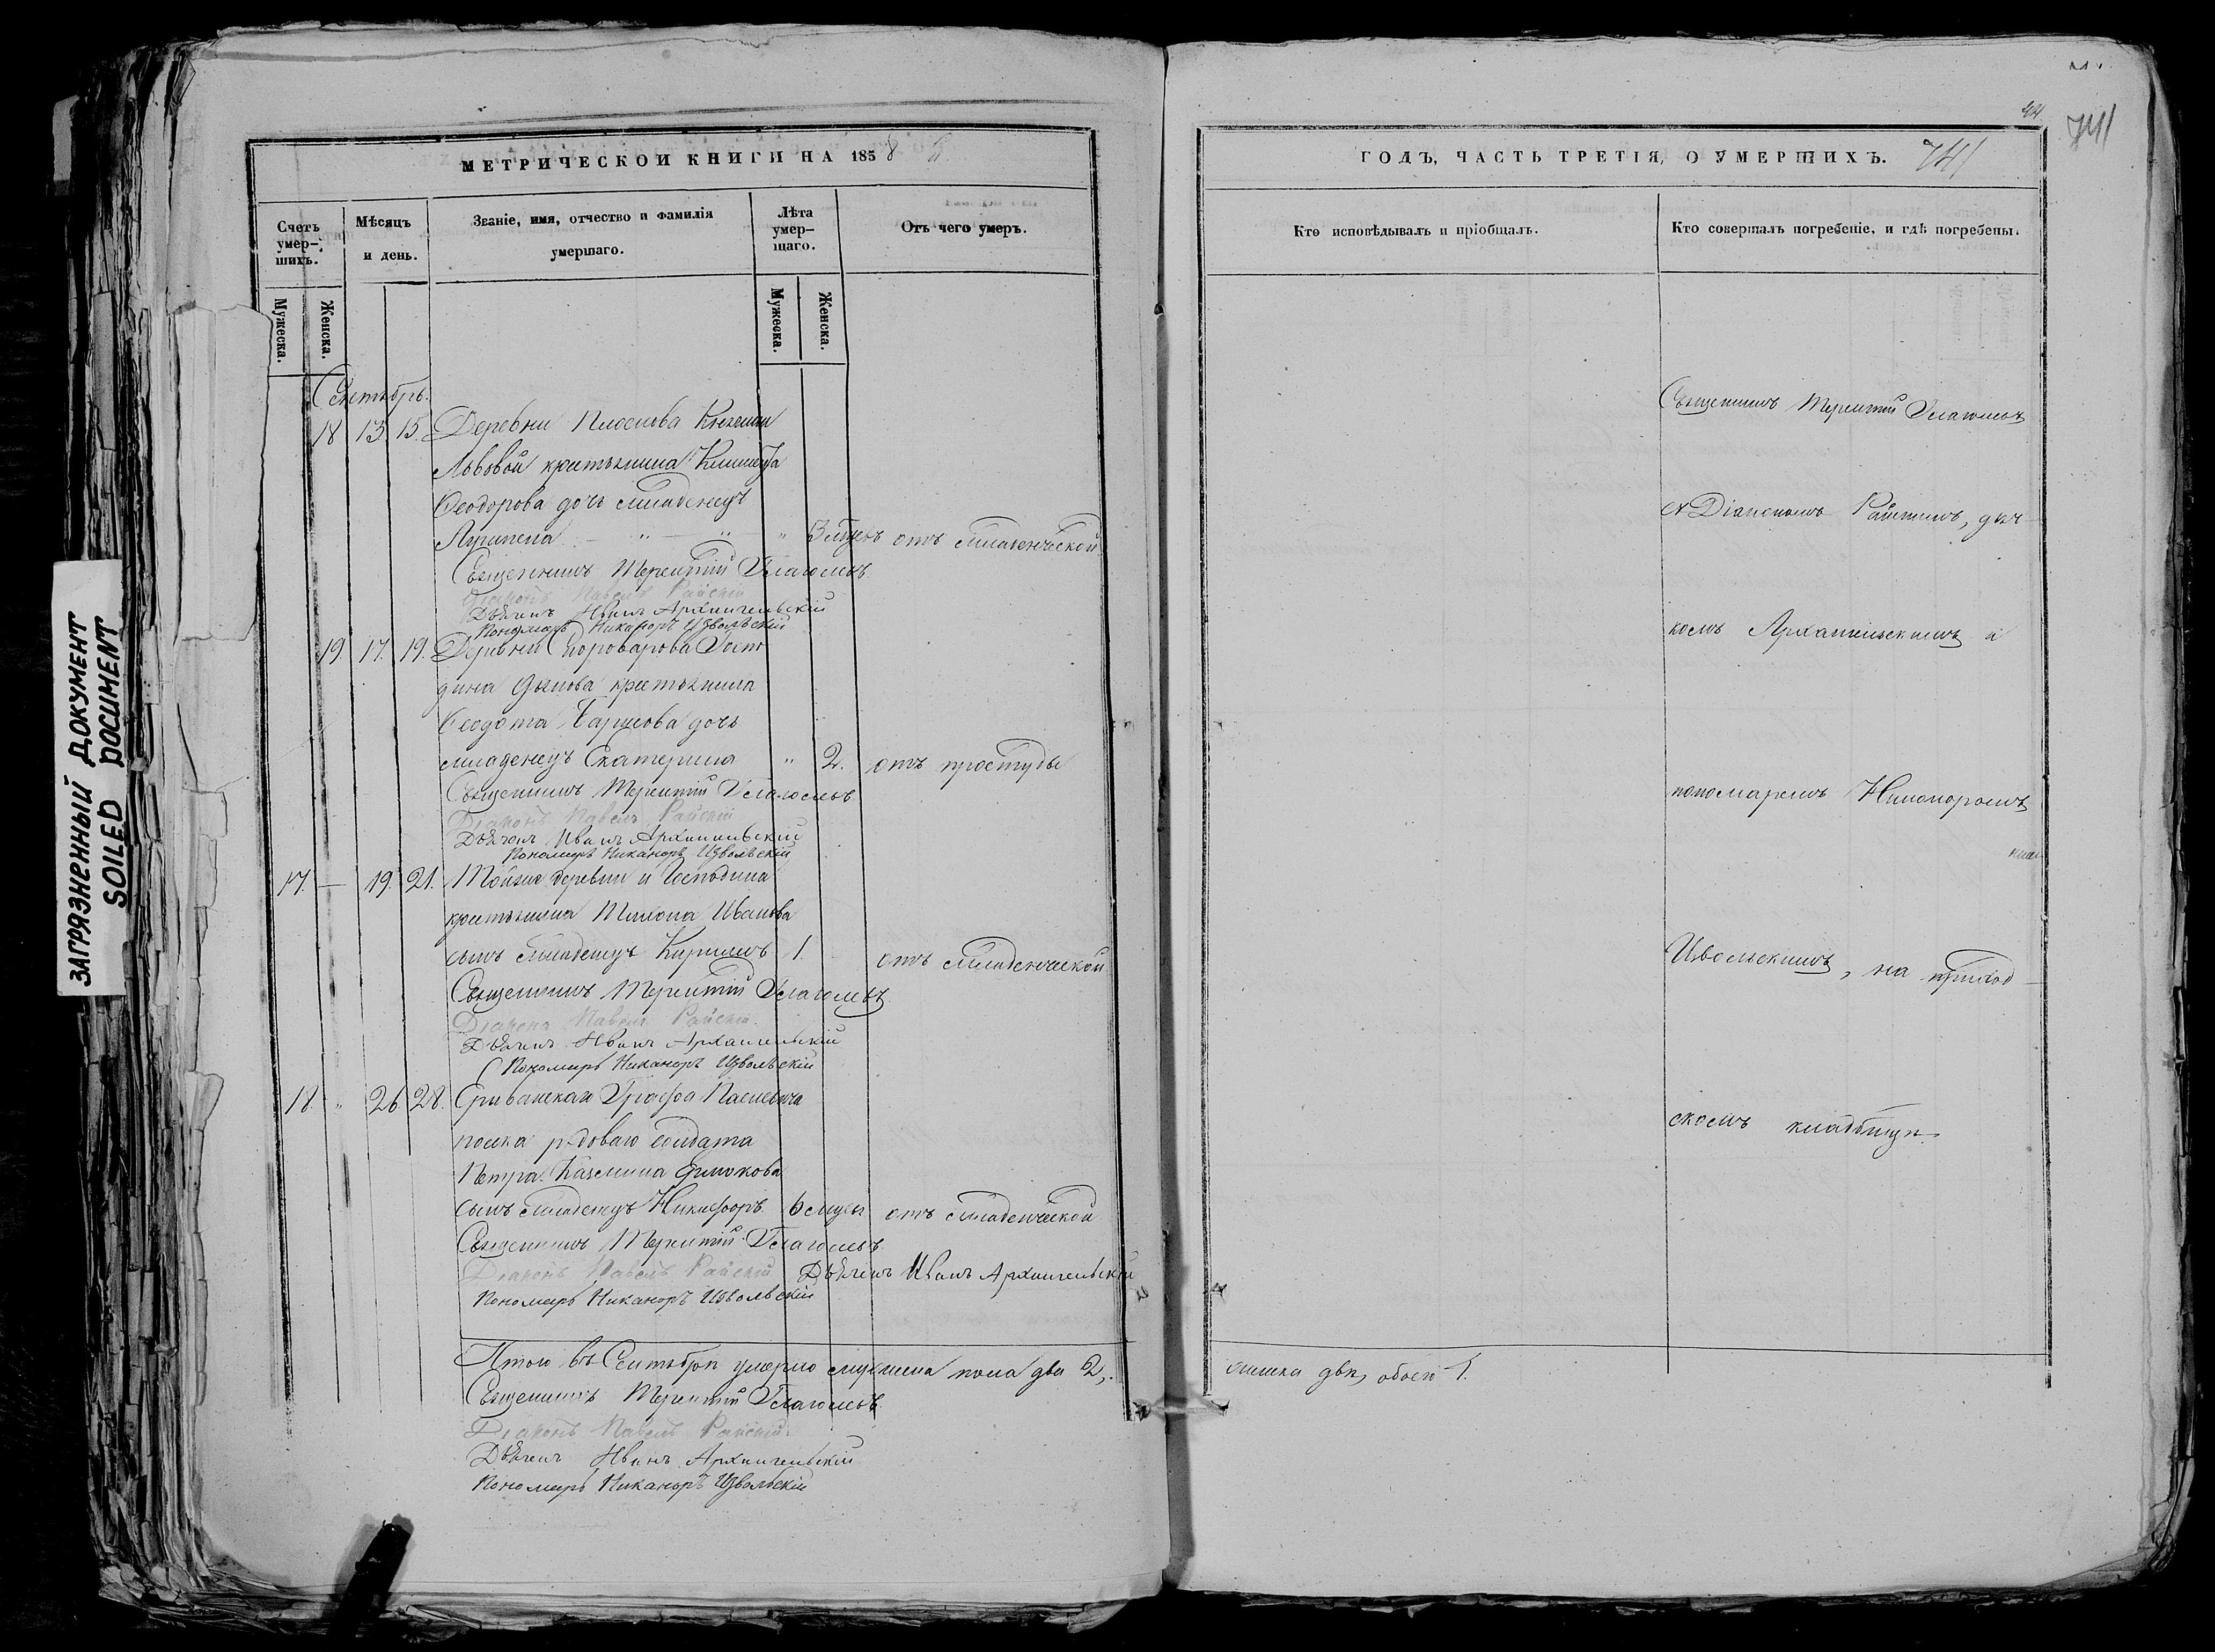 ЗАГРЯЗНЕННЫЙ ДОКУМЕНТ
SOILED DOCUMENT
МЕТРИЧЕСКОЙ КНИГИ НА 1858 й
Счетъ умер-шихъ.
Мѣсяцъ и день.
Званіе, имя, отчество и фамилія умершаго.
Лѣта умер-шаго.
Отъ чего умеръ.
Мужеска.
Женска.
Мужеска.
Женска.
Сентябрь.
18 13 15. Деревни Княгини
Львовой крестьянина
Ѳеодорова дочь младенецъ
" отъ младенческой
Священникъ Терентій Глаголевъ
Діаконъ Павелъ Райскій
Дьячекъ Иванъ Архангельскій
Пономарь Никаноръ Извольскій
19. 17. 19. Деревни Госпо
дина крестьянина
Ѳеодота дочь
младенецъ Екатерина " 2. отъ простуды
Священникъ Терентій Глаголевъ
Діаконъ Павелъ Райскій
Дьячекъ Иванъ Архангельскій
Пономарь Никаноръ Извольскій
17. — 19. 21. Тойже деревни и Господина
крестьянина Иванова
сынъ младенецъ 1. отъ младенческой
Священникъ Терентій Глаголевъ
Діаконъ Павелъ Райскій
Дьячекъ Иванъ Архангельскій
Пономарь Никаноръ Извольскій
18. " 26 28. Ериванскаго Графа Паскевича
полка рядоваго солдата
Петра
сынъ младенецъ Никифоръ 6 мцевъ отъ младенческой
Священникъ Терентій Глаголевъ
Діаконъ Павелъ Райскій Дьячекъ Иванъ Архангельскій
Пономарь Никаноръ Извольскій
Итого въ Сентябрѣ умерло мужеска пола два 2,.
Священникъ Терентій Глаголевъ
Діаконъ Павелъ Райскій
Дьячекъ Иванъ Архангельскій
Пономарь Никаноръ Извольскій
741
ГОДЪ, ЧАСТЬ ТРЕТІЯ, О УМЕРШИХЪ. 741
Кто исповѣдывалъ и пріобщалъ.
Кто совершалъ погребеніе, и гдѣ погребены.
Священникъ Терентій Глаголевъ
съ Діакономъ Райскимъ, дья-
комъ Архангельскимъ и
пономаремъ Никоноромъ
Извольскимъ, на приход-
скомъ кладбищѣ
женска двѣ, обоего